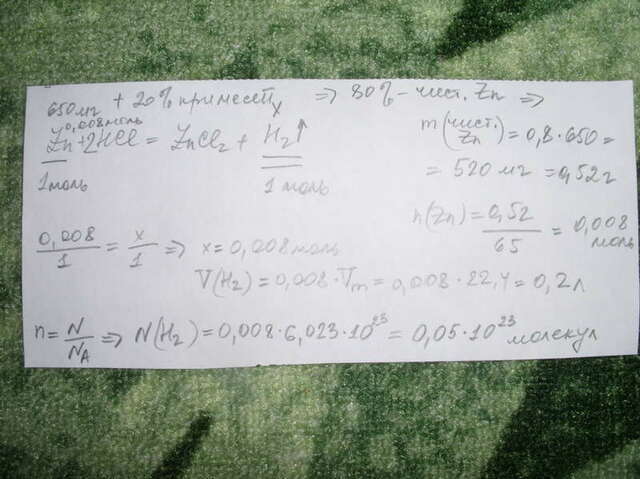 650 мг + 20% примесей ⇒ 80% - чист. Zn ⇒
0,008 моль x
Zn + 2HCl = ZnCl₂ + H₂↑
1 моль 1 моль
m (чист. Zn) = 0,8 · 650 =
= 520 мг = 0,52 г
n(Zn) = 0,52/65 = 0,008 моль
0,008/1 = x/1 ⇒ x = 0,008 моль
V(H₂) = 0,008 · Vm = 0,008 · 22,4 = 0,2 л
n = N/NA ⇒ N(H₂) = 0,008 · 6,023 · 10²³ = 0,05 · 10²³ молекул